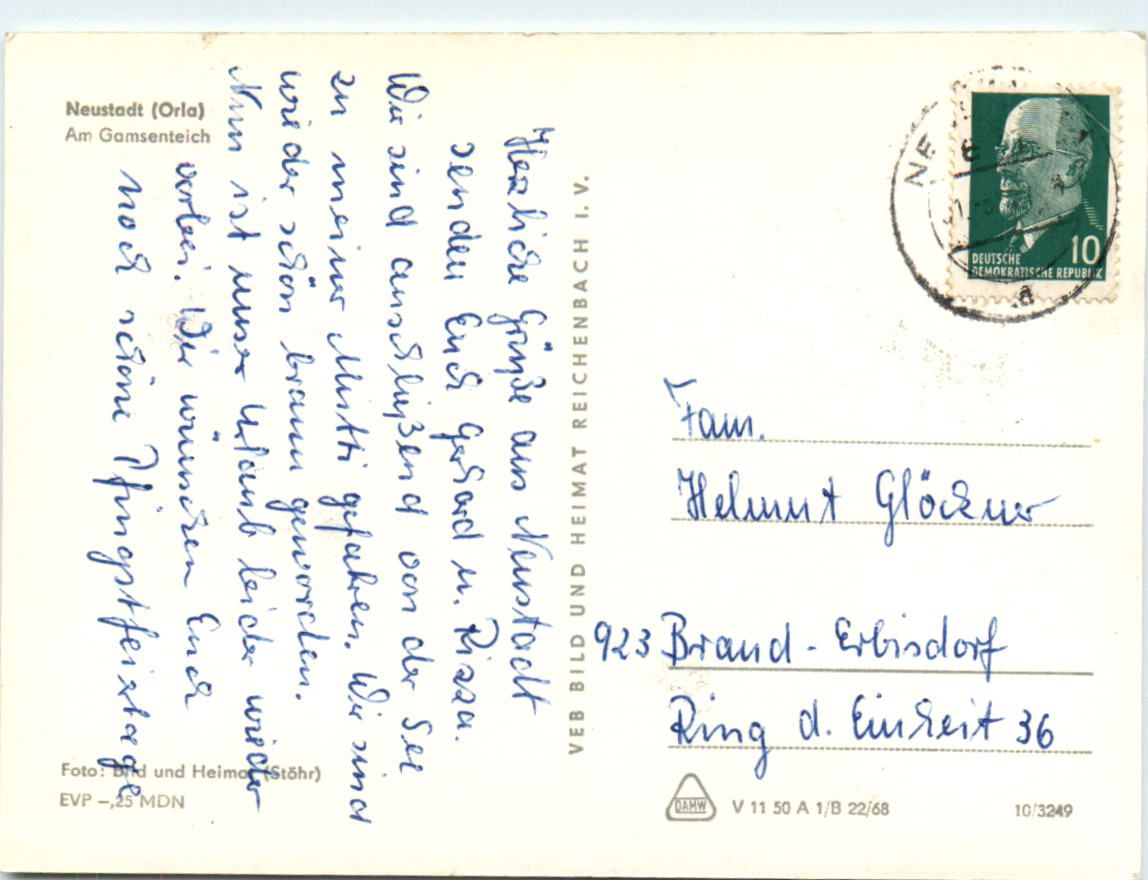 Neustadt (Orla)
Am Gamsenteich
Herzliche Grüße aus Neustadt
senden Euch Gerhard u.
Wir sind anschließend von der See
zu meiner Mutti gefahren. Wir sind
wieder schön braun geworden.
Nun ist unser Urlaub leider wieder
vorbei. Wir wünschen Euch
noch schöne Pfingstfeiertage
Foto: Bild und Heimat (Stöhr)
EVP -,25 MDN
VEB BILD UND HEIMAT REICHENBACH I. V.
NE
10
DEUTSCHE
DEMOKRATISCHE REPUBLIK
a
Fam.
Helmut Glöckner
923 Brand-Erbisdorf
Ring d. Einheit 36
DAMW
V 11 50 A 1/B 22/68
10/3249